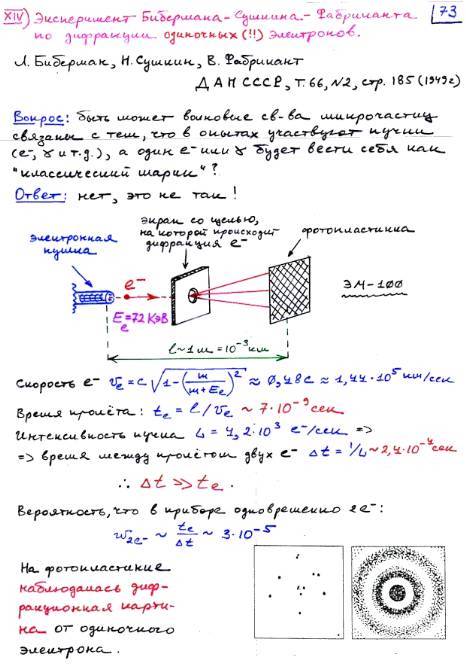 XIV) Эксперимент Бибермана-Сушкина-Фабриканта
по дифракции одиночных (!!) электронов.
73
Л. Биберман, Н. Сушкин, В. Фабрикант
ДАН СССР, Т. 66, N2, стр. 185 (1949г)
Вопрос: быть может волновые св-ва микрочастиц
связаны с тем, что в опытах участвуют пучки
(e⁻, γ и т.д.), а один e⁻ или γ будет вести себя как
"классический шарик"?
Ответ: нет, это не так!
электронная
пушка
экран со щелью,
на которой происходит
дифракция e⁻
фотопластинка
e⁻
Eₑ = 72 КэВ
ЭМ-100
l ~ 1 м = 10⁻³ км
Скорость e⁻ vₑ = c √(1 - (m/(m+Eₑ))²) ≈ 0,48c ≈ 1,44·10⁵ км/сек
Время пролёта: tₑ = l/vₑ ~ 7·10⁻⁹ сек
Интенсивность пучка L = 4,2·10³ e⁻/сек =>
=> время между пролётом двух e⁻ Δt = 1/L ~ 2,4·10⁻⁴ сек
∴ Δt >> tₑ.
Вероятность, что в приборе одновременно 2e⁻:
w₂ₑ₋ ~ tₑ/Δt ~ 3·10⁻⁵
На фотопластинке
наблюдалась диф-
ракционная карти-
на от одиночного
электрона.